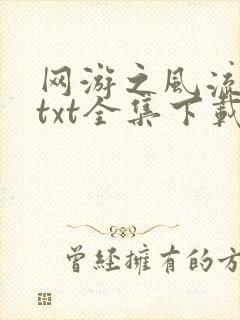 网游之风流
txt全集下載
曾經擁有的方